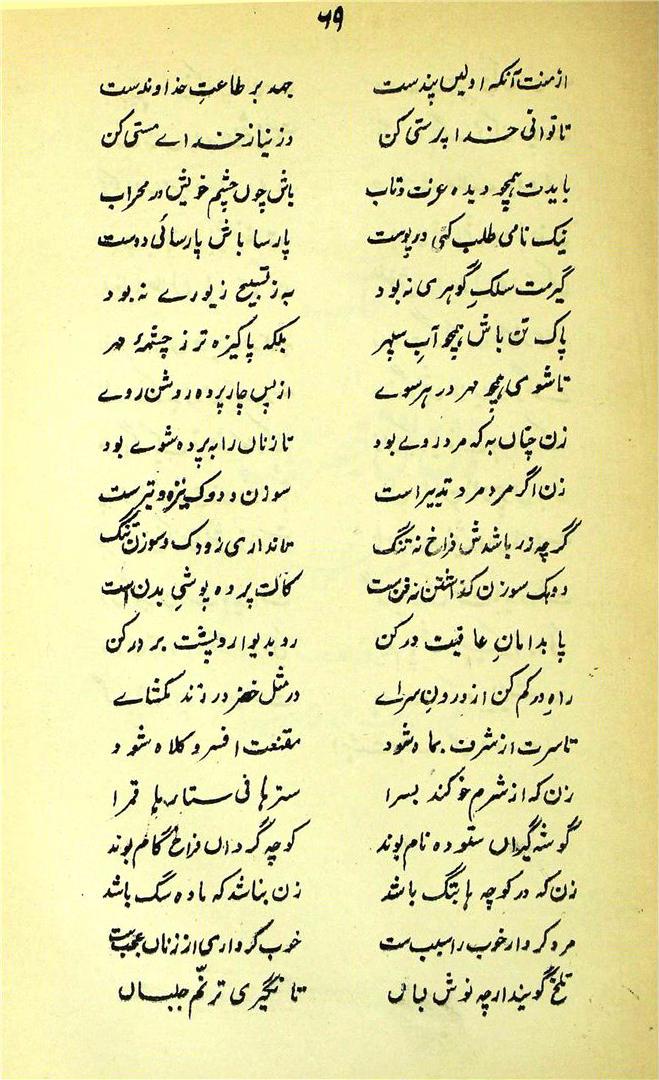 ۶۹
ازمنت آنکه اولیں پندست جهد بر طاعتِ خداوندست
تا توانی خدا پرستی کن وز نیاز خداے مستی کن
بایدت همچو دیده عزت و تاب باش چوں چشم خویش در محراب
نیک نامی طلب کنی در پوست پارسا باش پارسائی دوست
گیرمت سلکِ گوهری نه بود به ز تسبیح زیورے نه بود
پاک تن باش همچو آبِ سپهر بلکه پاکیزه تر ز چشمهٔ مهر
تا شوی همچو مهر در هر سوے از پس چار پرده روشن روے
زن چناں به که مرد روے بود تا زناں را به پرده شوے بود
زن اگر مرد مرد تدبیر است سوزن و دوک نیزه و تیرست
گرچه زر باشدش فراخ نه تنگ تا نداری ز دوک و سوزن ننگ
دوک سوزن گذاشتن نه فن ست کالت پرده پوشیِ بدن ست
پا بدامانِ عافیت در کن رو بدیوار و پشت بر در کن
راهِ در کم کن از درونِ سراے در مثل خضر در زند مکشاے
تا سرت از شرف بماه شود مقنعت افسر و کلاه شود
زن که از شرم خو کند بسرا سترها فی ستارها قمرا
گوشه گیراں ستوده نام بوند کوچه گرداں فراخ گام بوند
زن که در کوچه ها بتگ باشد زن نباشد که ماده سگ باشد
مرد کردار خوب را سبب ست خوب کرداری از زناں عجب ست
تلخ گویند ارچه نوش لباں تا نگیری ترنّم جلباں